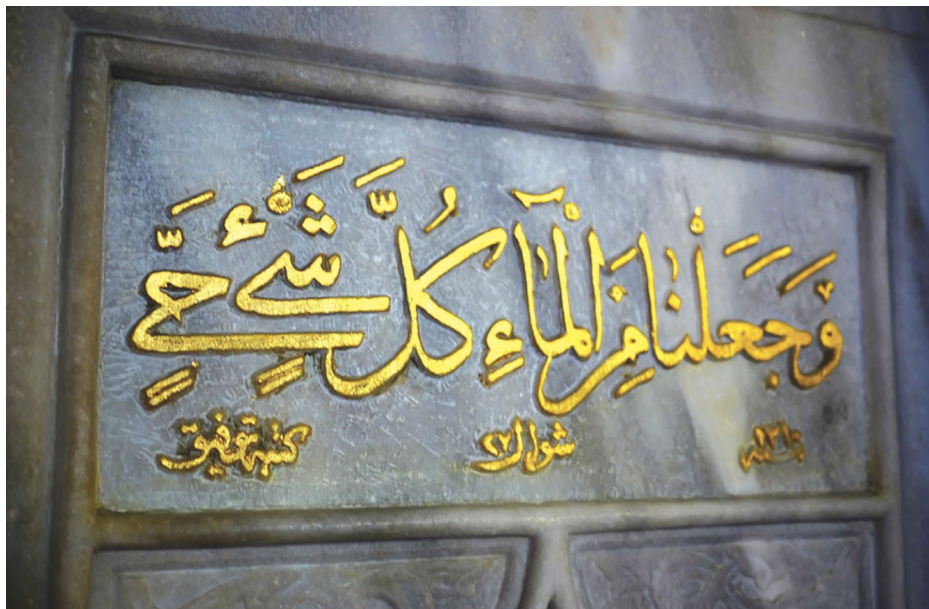 وَجَعَلْنَا مِنَ الْمَآءِ كُلَّ شَيْءٍ حَيٍّ
شوال ٢٧ كتبه توفيق